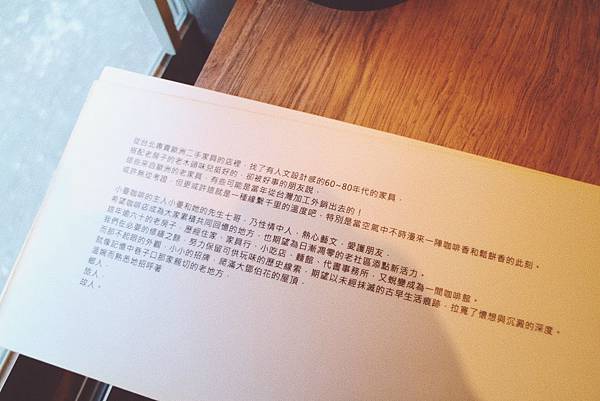 從台北專賣歐洲二手家具的店裡，找了有人文設計感的60~80年代的家具，
搭配老房子的老木頭味兒挺好的，卻被好事的朋友說，
這些來自歐洲的老家具，有些可能是當年從台灣加工外銷出去的！
或許無從考證，但更或許這就是一種緣繫千里的溫度吧，特別是當空氣中不時漫來一陣咖啡香和鬆餅香的此刻。
小曼咖啡的主人小曼和她的先生七哥，乃性情中人，熱心藝文，愛護朋友，
希望咖啡店成為大家累積共同回憶的地方，也期望為日漸凋零的老社區添點新活力。
這年逾六十的老房子，歷經住家、家具行、小吃店、麵館、代書事務所，又蛻變成為一間咖啡館。
我們在必要的修繕之餘，努力保留可供玩味的歷史線索，期望以未經抹滅的古早生活痕跡，拉寬了懷想與沉澱的深度。
而那不起眼的外觀，小小的招牌，爬滿大鄧伯花的屋頂，
就像記憶中巷子口那家親切的老地方，
溫婉而熟悉地招呼著
鄉人，
旅人，
故人。